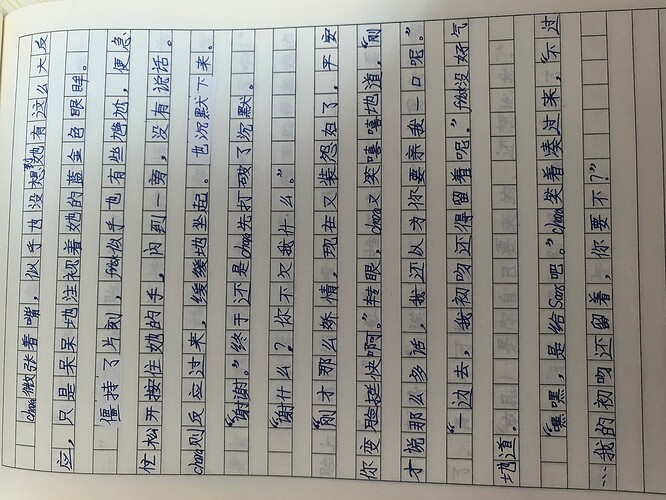 chara微张着嘴，似乎也没想到她有这么大反
应，只是呆呆地注视着她的蓝金色眼眸。
僵持了片刻，frisk似乎也有些尴尬，便急
忙松开按住她的手，闪到一旁，没有说话。
chara则反应过来，缓缓地坐起。也沉默下来。
“谢谢。”终于还是chara先打破了沉默。
“谢什么？你不欠我什么。”
“刚才那么矫情，现在又装怨妇了，平安
你变脸挺快啊。”转眼，chara又笑嘻嘻地道，“刚
才说那么多话，我还以为你要亲我一口呢。”
“一边去，我初吻还得留着呢。”frisk没好气
地道.
“嘿嘿，是给Sans吧。”chara笑着凑过来，“不过
…我的初吻还留着，你要不？”